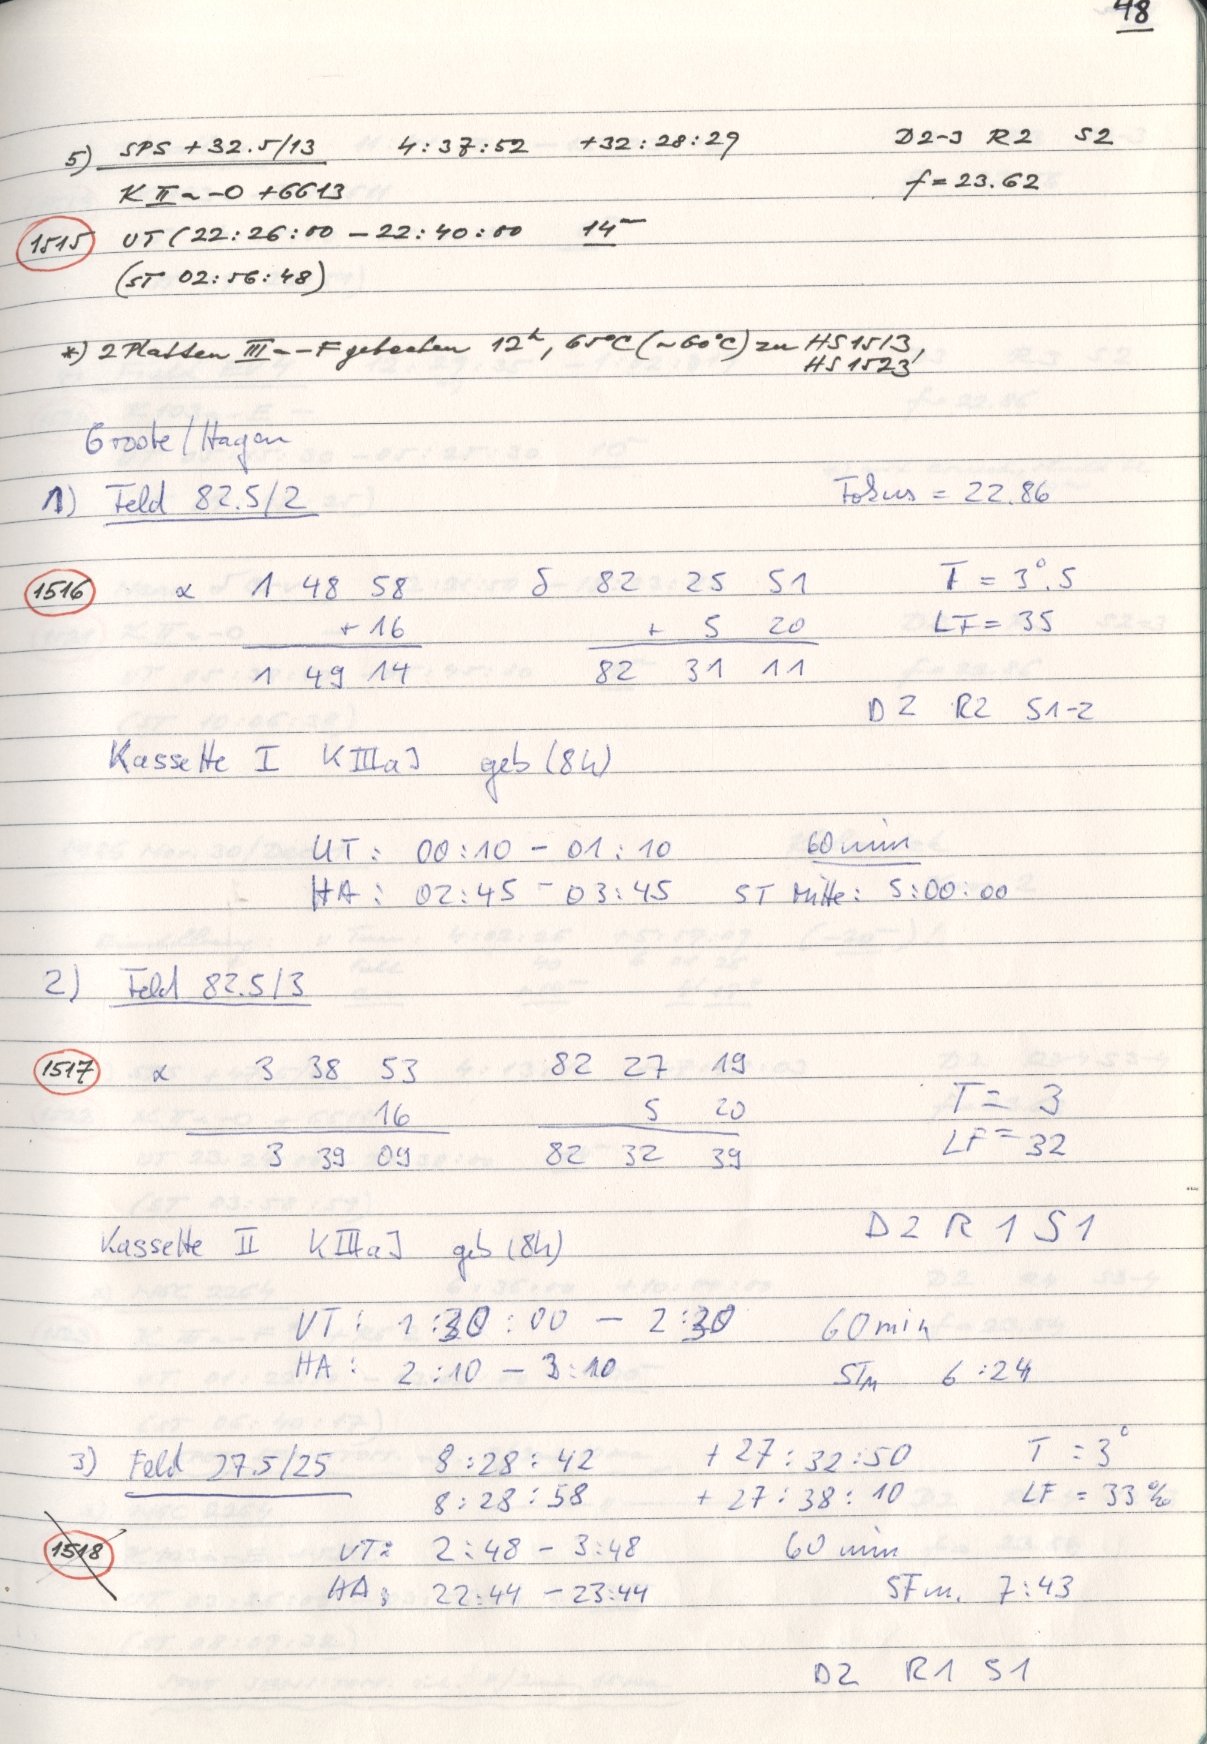 48
5) SPS + 32.5/13 4:37:52 +32:28:29 D2-3 R2 S2
K IIa-O +GG13 f = 23.62
1515 UT (22:26:00 - 22:40:00 14m
(ST 02:56:48)
*) 2 Platten IIIa-F gebacken 12h, 65°C (~60°C) zu HS1513,
HS1523
Groote / Hagen
1) Feld 82.5/2 Fokus = 22.86
1516 α 1 48 58 δ 82 25 51 T = 3°.5
+ 16 + 5 20 LF = 35
1 49 14 82 31 11
D2 R2 S1-2
Kassette I K IIIaJ geb (8h)
UT: 00:10 - 01:10 60 min
HA: 02:45 - 03:45 ST Mitte: 5:00:00
2) Feld 82.5/3
1517 α 3 38 53 82 27 19
16 5 20 T = 3
3 39 09 82 32 39 LF = 32
Kassette II K IIIaJ geb (8h) D2 R1 S1
UT: 1:30:00 - 2:30 60 min
HA: 2:10 - 3:10 STm 6:24
3) Feld 27.5/25 8:28:42 + 27:32:50 T = 3°
8:28:58 + 27:38:10 LF = 33%
1518 UT: 2:48 - 3:48 60 min
HA: 22:44 - 23:44 STm. 7:43
D2 R1 S1